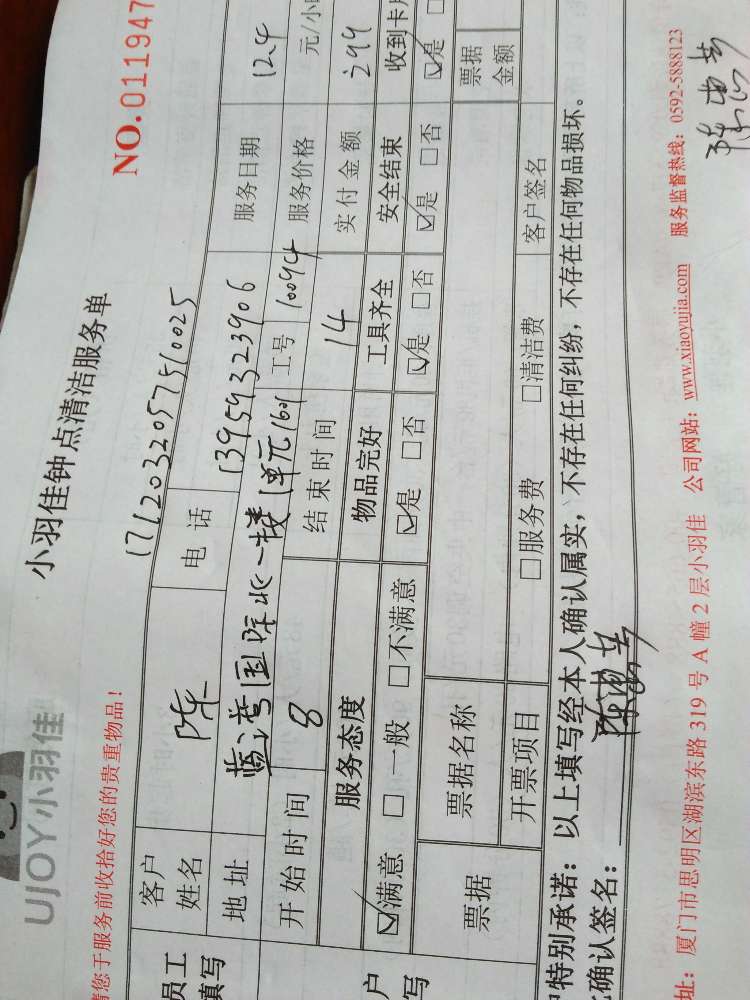 UJOY小羽佳
小羽佳钟点清洁服务单
NO.011947
请您于服务前收拾好您的贵重物品!
1712032057510025
员工
填写
客户
姓名 陈 电话 13959323906 服务日期 124
地址 蓝湾国际北一楼1单元1601 工号 10094 服务价格 元/小
开始时间 8 结束时间 14 实付金额 299
服务态度 物品完好 工具齐全 安全结束 收到卡
☑满意 □一般 □不满意 ☑是 □否 ☑是 □否 ☑是 □否 ☑是
户
写
票据 票据名称 票据
金额
开票项目 □服务费 □清洁费 客户签名
特别承诺:以上填写经本人确认属实,不存在任何纠纷,不存在任何物品损坏。
确认签名:
址:厦门市思明区湖滨东路319号A幢2层小羽佳 公司网站:www.xiaoyujia.com 服务监督热线:0592-5888123